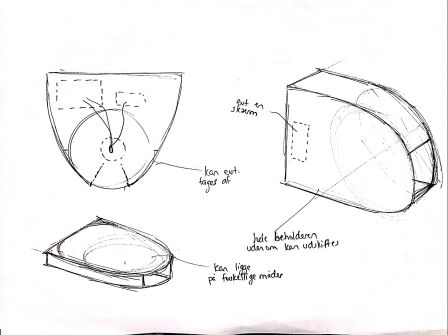 evt en
skærm
kan evt.
tages af
hele beholderen
udenom kan udskiftes
kan ligge
på forskellige måder